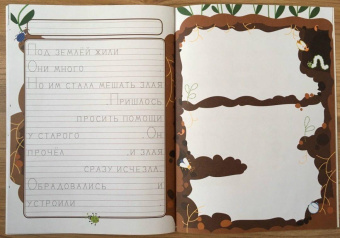 Под землей жили
Они много
Но им стала мешать злая
. Пришлось
просить помощи
у старого . Он
прочёл , и злая
сразу исчезла.
Обрадовались и
устроили .